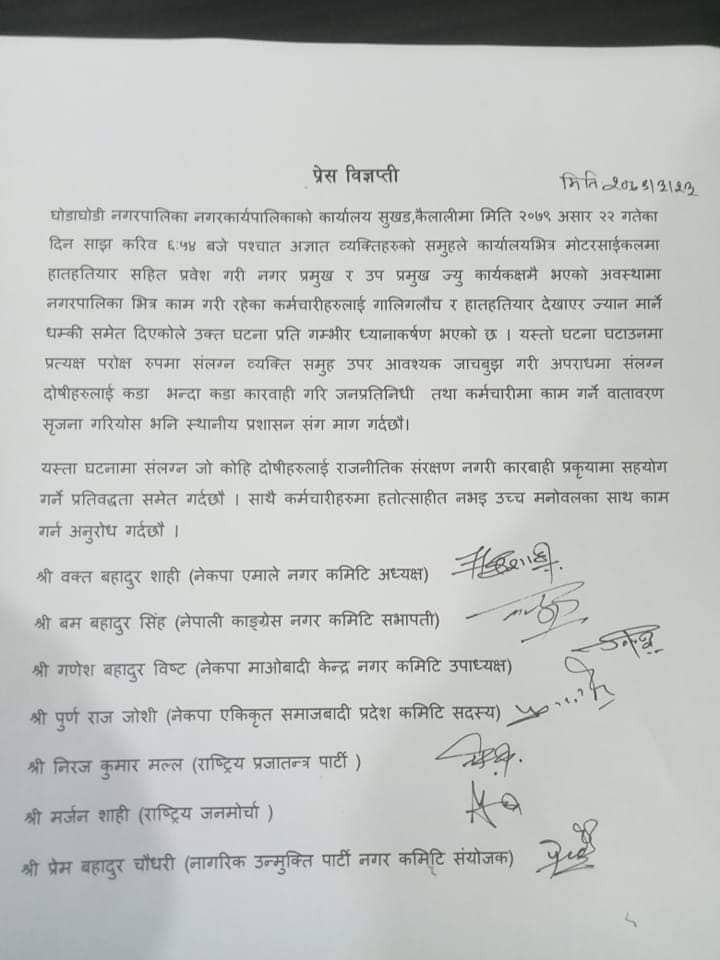 प्रेस विज्ञप्ती
मिति २०७९/३/२३
घोडाघोडी नगरपालिका नगरकार्यपालिकाको कार्यालय सुखड,कैलालीमा मिति २०७९ असार २२ गतेका
दिन साझ करिव ६:५४ बजे पश्चात अज्ञात व्यक्तिहरुको समुहले कार्यालयभित्र मोटरसाईकलमा
हातहतियार सहित प्रवेश गरी नगर प्रमुख र उप प्रमुख ज्यु कार्यकक्षमै भएको अवस्थामा
नगरपालिका भित्र काम गरी रहेका कर्मचारीहरुलाई गालिगलौच र हातहतियार देखाएर ज्यान मार्ने
धम्की समेत दिएकोले उक्त घटना प्रति गम्भीर ध्यानाकर्षण भएको छ । यस्तो घटना घटाउनमा
प्रत्यक्ष परोक्ष रुपमा संलग्न व्यक्ति समुह उपर आवश्यक जाचबुझ गरी अपराधमा संलग्न
दोषीहरुलाई कडा भन्दा कडा कारवाही गरि जनप्रतिनिधी तथा कर्मचारीमा काम गर्ने वातावरण
सृजना गरियोस भनि स्थानीय प्रशासन संग माग गर्दछौ।
यस्ता घटनामा संलग्न जो कोहि दोषीहरुलाई राजनीतिक संरक्षण नगरी कारबाही प्रकृयामा सहयोग
गर्ने प्रतिवद्धता समेत गर्दछौ । साथै कर्मचारीहरुमा हतोत्साहीत नभइ उच्च मनोवलका साथ काम
गर्न अनुरोध गर्दछौ ।
श्री वक्त बहादुर शाही (नेकपा एमाले नगर कमिटि अध्यक्ष)
श्री बम बहादुर सिंह (नेपाली काङ्ग्रेस नगर कमिटि सभापती)
श्री गणेश बहादुर विष्ट (नेकपा माओबादी केन्द्र नगर कमिटि उपाध्यक्ष)
श्री पुर्ण राज जोशी (नेकपा एकिकृत समाजबादी प्रदेश कमिटि सदस्य)
श्री निरज कुमार मल्ल (राष्ट्रिय प्रजातन्त्र पार्टी )
श्री मर्जन शाही (राष्ट्रिय जनमोर्चा )
श्री प्रेम बहादुर चौधरी (नागरिक उन्मुक्ति पार्टी नगर कमिटि संयोजक)